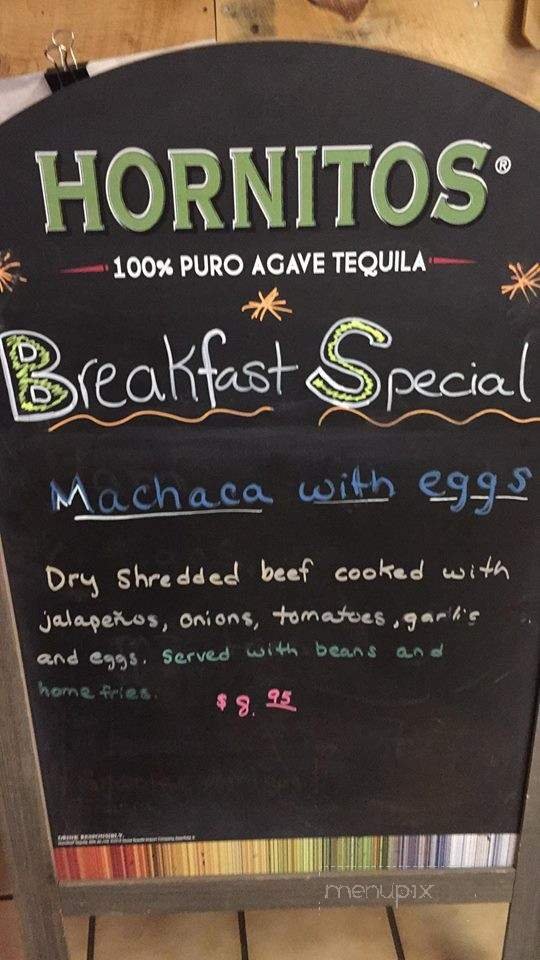 HORNITOS®
100% PURO AGAVE TEQUILA
Breakfast Special
Machaca with eggs
Dry shredded beef cooked with
jalapeños, onions, tomatoes, garlic
and eggs. Served with beans and
home fries. $8.95
DRINK RESPONSIBLY.
menupix